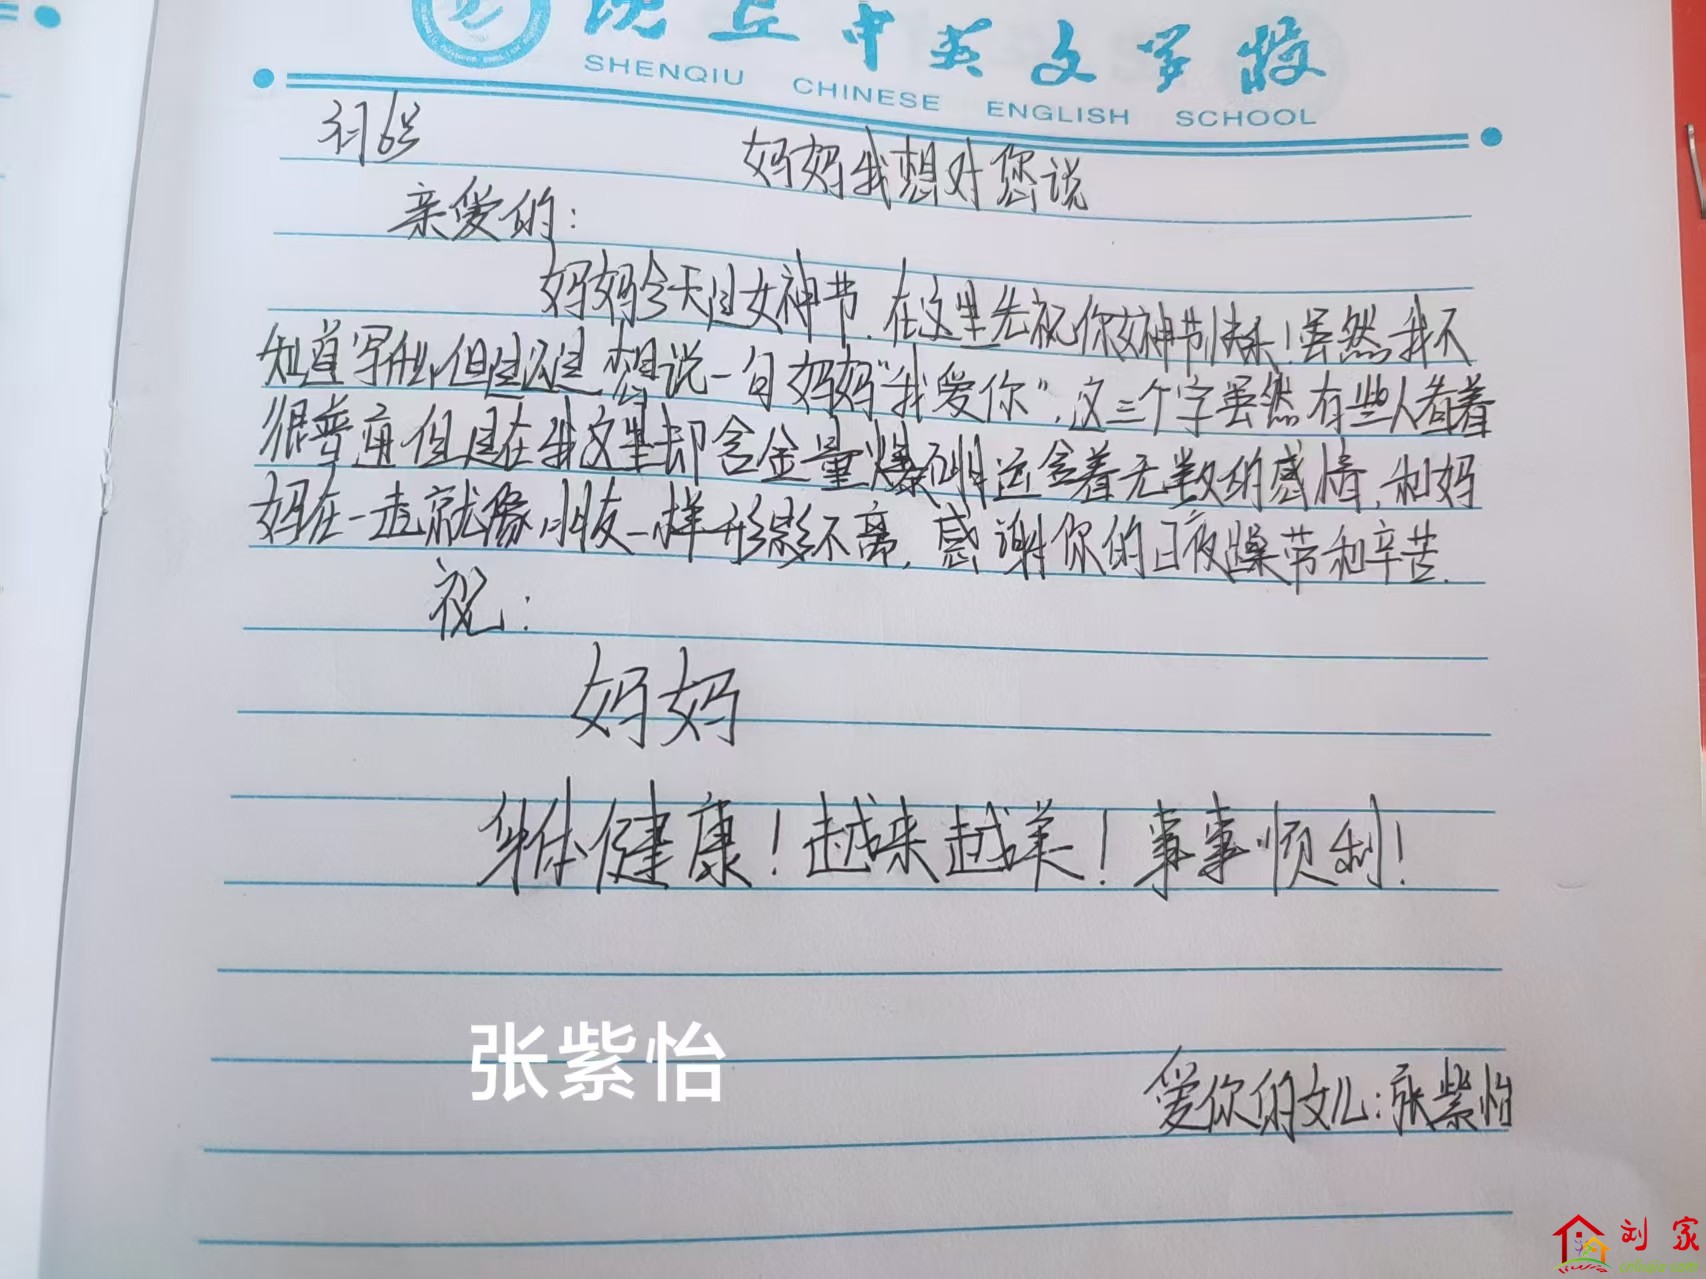 沈丘中英文学校
SHENQIU CHINESE ENGLISH SCHOOL
3月6号
妈妈我想对您说
亲爱的:
妈妈今天过女神节.在这里先祝你女神节快乐!虽然我不
知道写什么,但是还是想说一句妈妈"我爱你".这三个字虽然有些人看着
很普通但是在我这里却含金量爆 还含着无数的感情,和妈
妈在一起就像 朋友一样形影不离,感谢你的日夜操劳和辛苦.
祝:
妈妈
身体健康!越来越美!事事顺利!
张紫怡
爱你的女儿:张紫怡
刘家